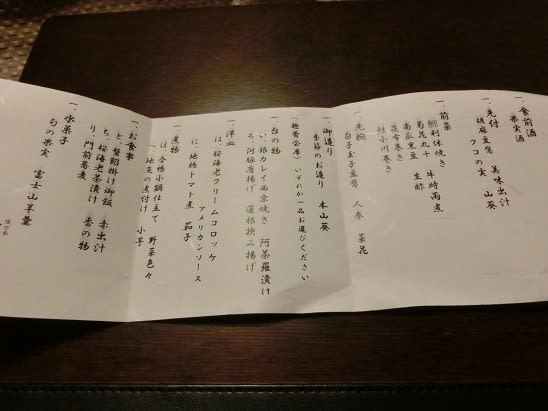 一、食前酒
果実酒
一、先付　美味出汁
胡麻豆腐　クコの実　山葵
一、前菜
利休焼き　牛時雨煮
菊花丸十　生酢
南瓜豆富
昆布巻き
鮭小川巻き
一、先椀
白子玉子豆腐　人参　菜花
一、御造り
季節のお造り　本山葵
〈趣肴会席〉いずれか一品お選びください
一、台の物
い、銀カレイ西京焼き　阿茶羅漬け
ろ、河豚唐揚げ　蓮根挟み揚げ
一、洋皿
は、桜海老クリームコロッケ
アメリカンソース
に、地鶏トマト煮　茄子
一、煮物
ほ、合鴨小鍋仕立て　野菜色々
へ、地魚の煮付け　小芋
一、お食事
と、蟹餡掛け御飯　赤出汁
ち、桜海老茶漬け　香の物
り、門前蕎麦
一、水菓子
旬の果実　富士山羊羹